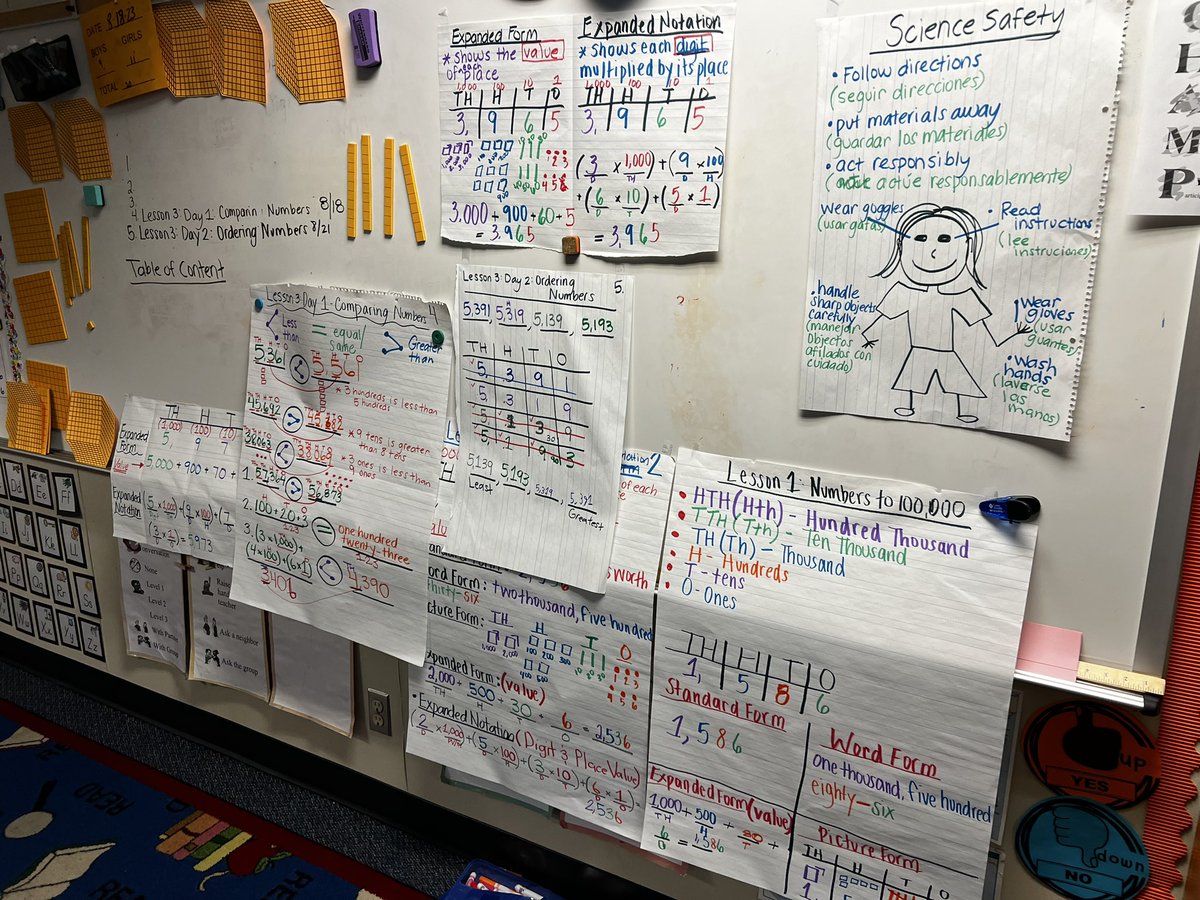 DATE 8-18-23
BOYS GIRLS
TOTAL
1
2.
3.
4. Lesson 3: Day 1: Comparin: Numbers 8/18
5. Lesson 3: Day 2: Ordering Numbers 8/21
Table of Content
Expanded Form
* shows the value
of each place
1,000 100 10 1
TH H T O
3, 9 6 5
3,000 + 900 + 60 + 5
= 3,965
Expanded Notation
* shows each digit
multiplied by its place
1,000 100 10 1
TH H T O
3, 9 6 5
(3 × 1,000) + (9 × 100)
(6 × 10) + (5 × 1)
= 3,965
Science Safety
• Follow directions
(seguir direcciones)
• put materials away
(guardar los materiales)
• act responsibly
(actúe responsablemente)
wear goggles
(usar gafas)
• Read
instructions
(lee
instruciones)
• handle
sharp objects
carefully
(manejar
objectos
afilados con
cuidado)
wear
gloves
(usar
guantes)
• Wash
hands
(laverse
las
manos)
Lesson 3 Day 1: Comparing Numbers 4
< Less
than
= equal/
same
> Greater
than
5,361 < 5,561
* 3 hundreds is less than
5 hundreds
45,692 > 45,682
* 9 tens is greater
than 8 tens
* 3 ones is less
9 ones
1. 57,364 > 56,873
2. 100 + 20 + 3 = one hundred
twenty-three
123
3. (3 × 1,000) +
(4 × 100) + (6 × 1)
3406 < 4,390
Lesson 3: Day 2: Ordering 5.
Numbers
5,391, 5,319, 5,139, 5,193
TH H T O
5, 3 9 1
5, 3 1 9
5, 1 3 9
5, 1 9 3
5,139, 5,193, 5,319, 5,391
Least Greatest
TH H T
(1,000) (100) (10)
5 9 7
Expanded
Form
Value
5,000 + 900 + 70 +
Expanded
Notation
(5 × 1,000) + (9 × 100) +
(3 × 1) = 5973
2
of each
worth
Word Form: two thousand, five hundred
thirty-six
Picture Form: TH H T O
Expanded Form: (value)
2,000 + 500 + 30 + 6 = 2,536
TH H T O
• Expanded Notation (Digit & Place Value)
(2 × 1,000) + (5 × 100) + (3 × 10) + (6 × 1) =
2,536
Lesson 1: Numbers to 100,000
• HTH (Hth) - Hundred Thousand
• TTH (Tth) - Ten Thousand
• TH (Th) - Thousand
• H - Hundreds
• T - tens
• O - Ones
TH H T O
1, 5 8 6
Standard Form
1,586
Word Form
one thousand, five hundred
eighty-six
Expanded Form (value)
1,000 + 500 + 80 +
TH H T
6 = 1,586
O
Picture Form
TH H T O
None
Level 1
Level 2
Level 3
With Partner
With Group
Raise
hand
teacher
Ask a neighbor
Ask the group
Dd Ee Ff
Jj Kk
Pp Qq Rr Ss
Xx Yy Zz
up
YES
down
NO
READ
READ